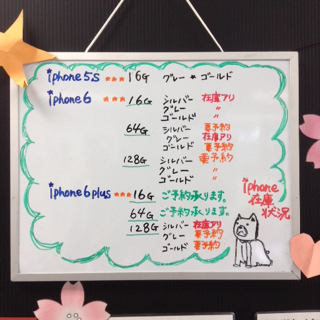 iphone5s ★★★ 16G グレー ★ ゴールド
iphone6 ★★★ 16G シルバー 在庫アリ
グレー 〃
ゴールド 〃
64G シルバー 要予約
グレー 在庫アリ
ゴールド 要予約
128G シルバー 要予約
グレー 〃
ゴールド 〃
iphone6plus ★★★ 16G ご予約承ります。
64G ご予約承ります。
128G シルバー 在庫アリ
グレー 要予約
ゴールド 要予約
iphone
在庫
状況